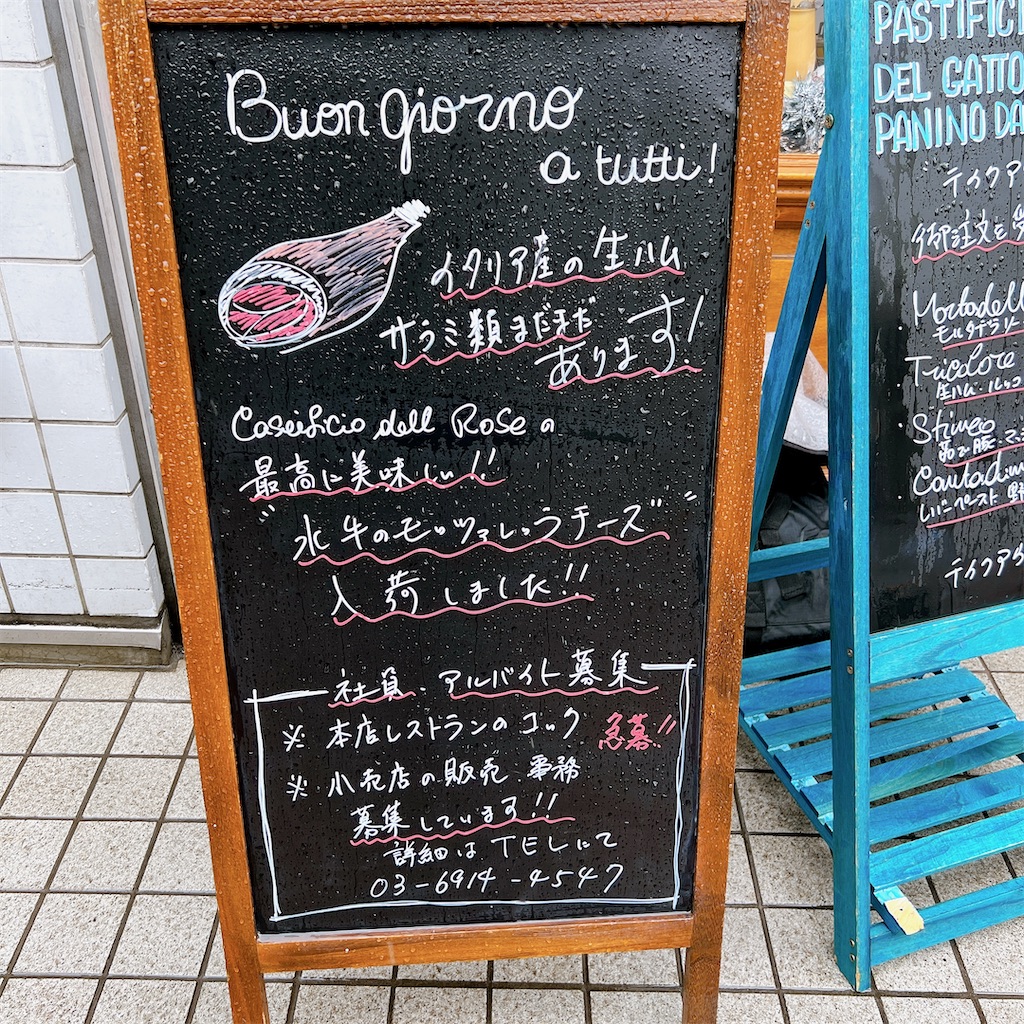 Buon giorno
a tutti!
イタリア産の生ハム
サラミ類まだまだ
あります!
Caseificio dell Roseの
最高に美味しい!!
"水牛のモッツァレッラチーズ"
入荷しました!!
社員、アルバイト募集
※ 本店レストランのコック 急募!!
※ 小売店の販売 事務
募集しています!!
詳細はTELにて
03-6914-4547
PASTIFICI
DEL GATTO
PANINO DA
テイクア
御注文を
Mortadell
モルタデラ
Tricolore
生ハム・ルッコ
テイクアウ